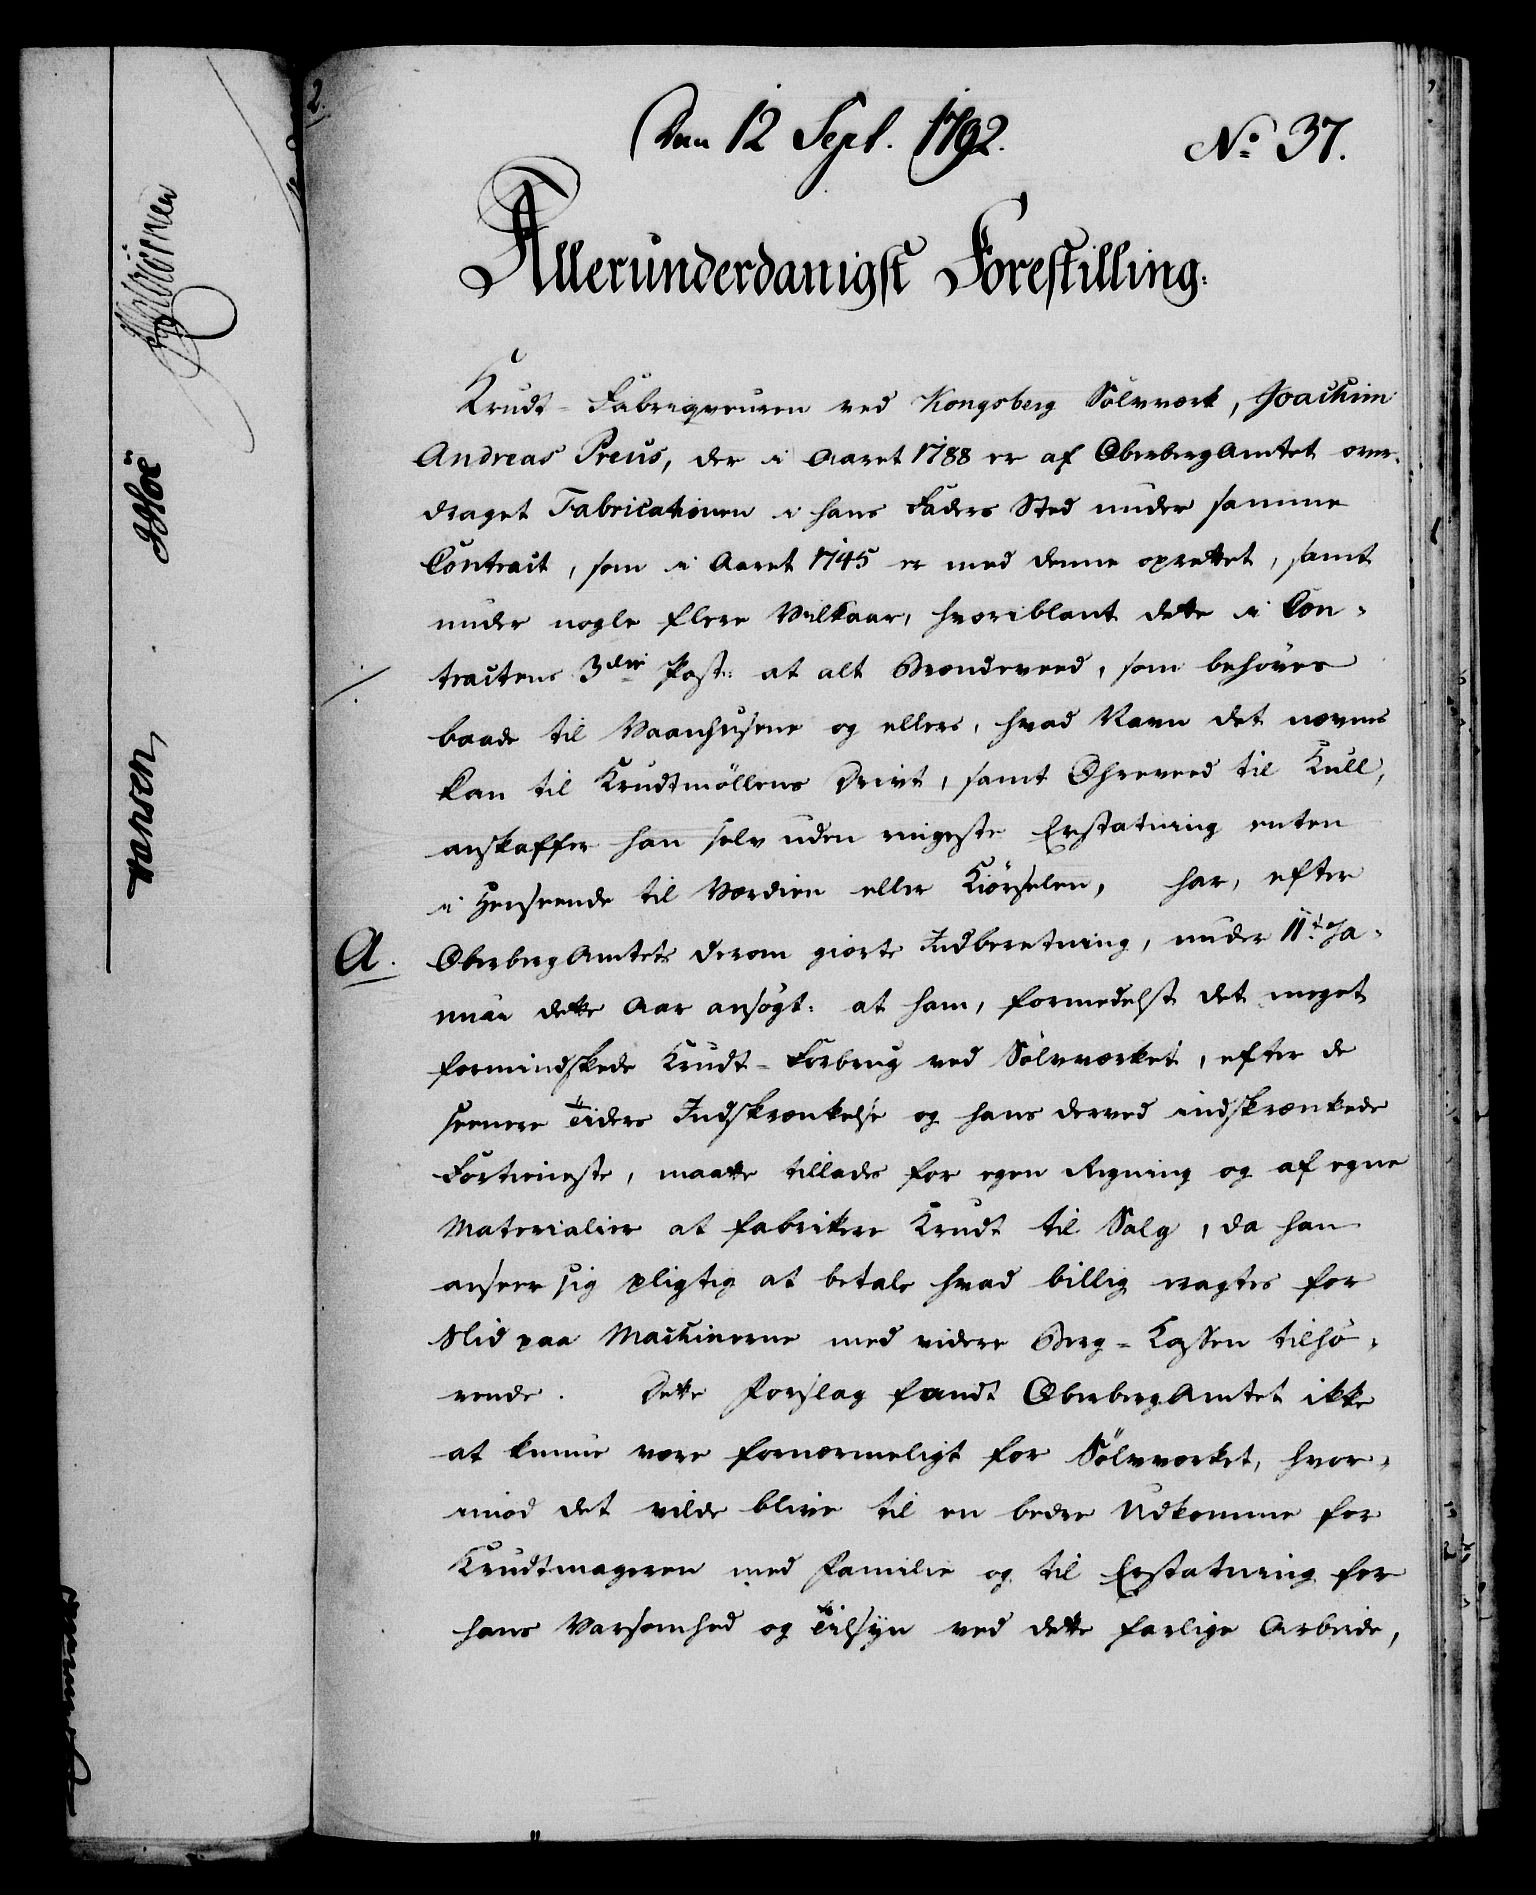 Den 12 Sept. 1792.
No 37.
Allerunderdanigst Forestilling:
Krudt-Fabriqveuren ved Kongsberg Sölvværk, Joachim
Andreas Preus, der i Aaret 1788 er af OberbergAmtet over-
draget Fabricationen i hans Faders Sted under samme
Contract, som i Aaret 1745 er med denne oprettet, samt
under nogle flere Vilkaar, hvoriblant dette i Con-
tractens 3die Post: at alt Brændeveed, som behöves
baade til Vaanhusene og ellers, hvad Navn det nævnes
kan til Krudtmöllens Drivt, samt Ohreveed til Kull,
anskaffer han selv uden ringeste Erstatning enten
i Henseende til Værdien eller Kiörselen, har, efter
A.
OberbergAmtets derom giorte Indberetning, under 11t Ja-
nuar dette Aar ansögt: at ham, formedelst det meget
formindskede Krudt-Forbrug ved Sölvværket, efter de
seenere Tiders Indskrænkelse og hans derved indskrænkede
Fortieneste, maatte tillades for egen Regning og af egne
Materialier at fabrikere Krudt til Salg, da han
anseer sig pligtig at betale hvad billig eragtes for
Slid paa Machinerne med videre Berg-Cassen tilhö-
rende. Dette Forslag fandt OberbergAmtet ikke
at kunne være fornærmeligt for Sölvværket, hvor-
imod det vilde blive til en bedre Udkomme for
Krudtmageren med Familie og til Erstatning for
hans Varsomhed og Tilsyn ved dette farlige Arbeide,
Hansen